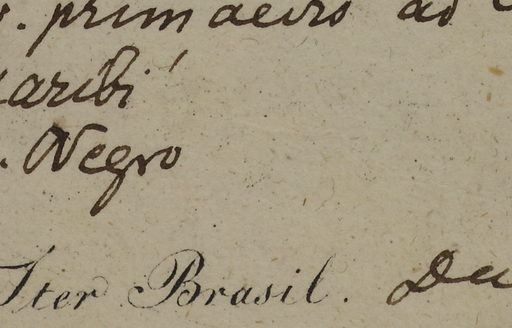 . primaevis ad
aribi
. Negro
Iter Brasil. De